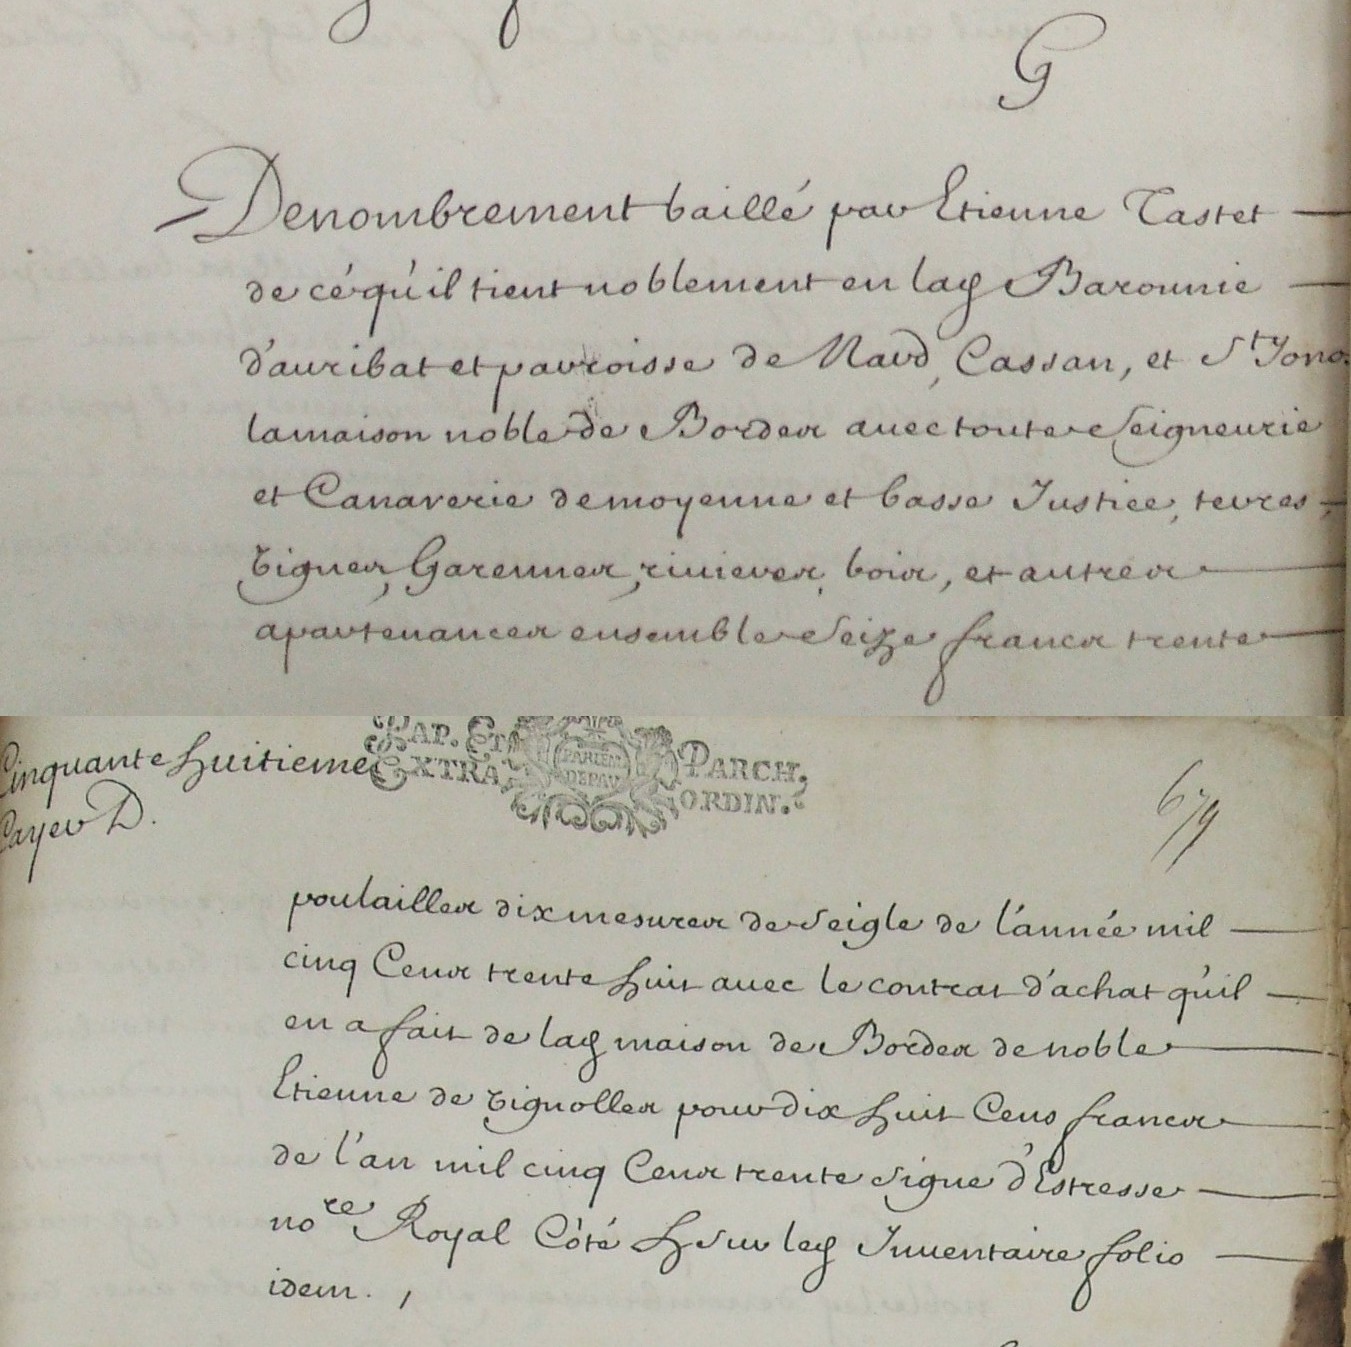 G
Denombrement baillé par Etienne Tastet
de cé qu'il tient noblement en lad Baronnie
d'auribat et parroisse de Nard, Cassan, et St Jono
la maison noble de Bordes avec toute Seigneurie
et Canaverie de moyenne et basse Justice, terres,
vignes, Garennes, rivieres, bois, et autres
apartenances ensemble Seize francs trente
Cinquante huitieme
Cayer D.
PAP. ET PARCH,
EXTRAORDIN.
PARLEM
DEPAU
679
poulailles dix mesures de Seigle de l'année mil
cinq Cens trente huit avec le contrat d'achat qu'il
en a fait de lad maison de Bordes de noble
Etienne de vignolles pour dix huit Cens francs
de l'an mil cinq Cens trente signé d'Estresse
nore Royal Côté H Sur led Inventaire folio
idem.,